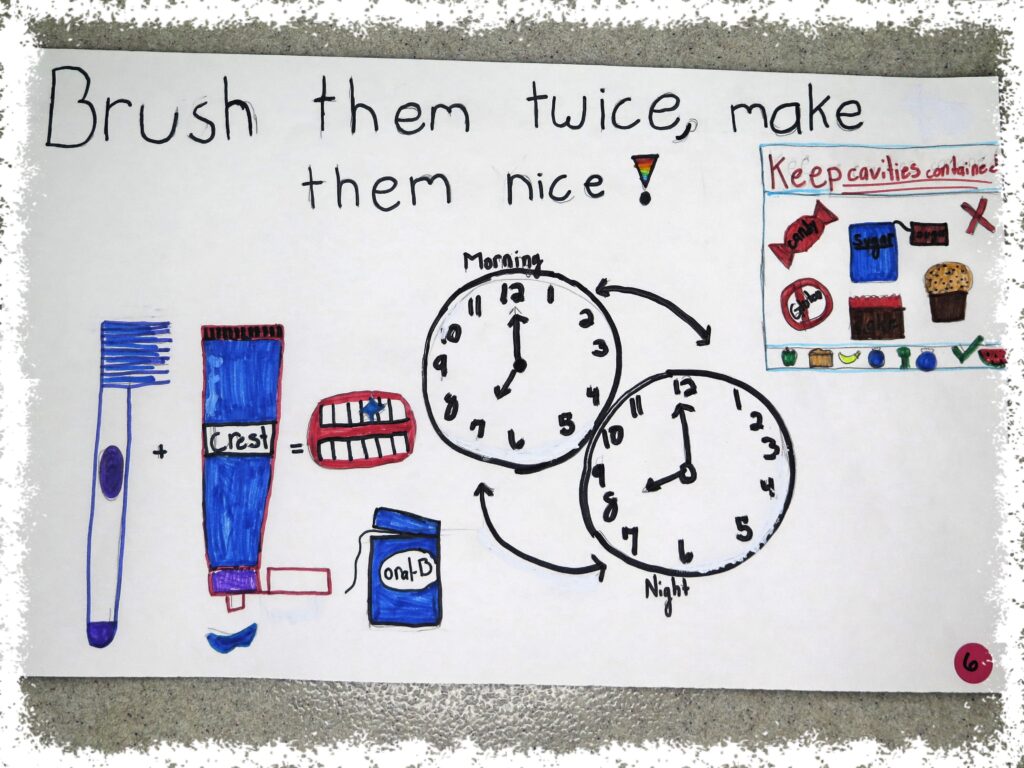 Brush them twice, make
them nice!
Keep cavities contained
candy
Sugar
Morning
12
1
2
3
4
5
6
7
8
9
10
11
+
Crest
=
12
1
2
3
4
5
6
7
8
9
10
11
oral-B
Night
6